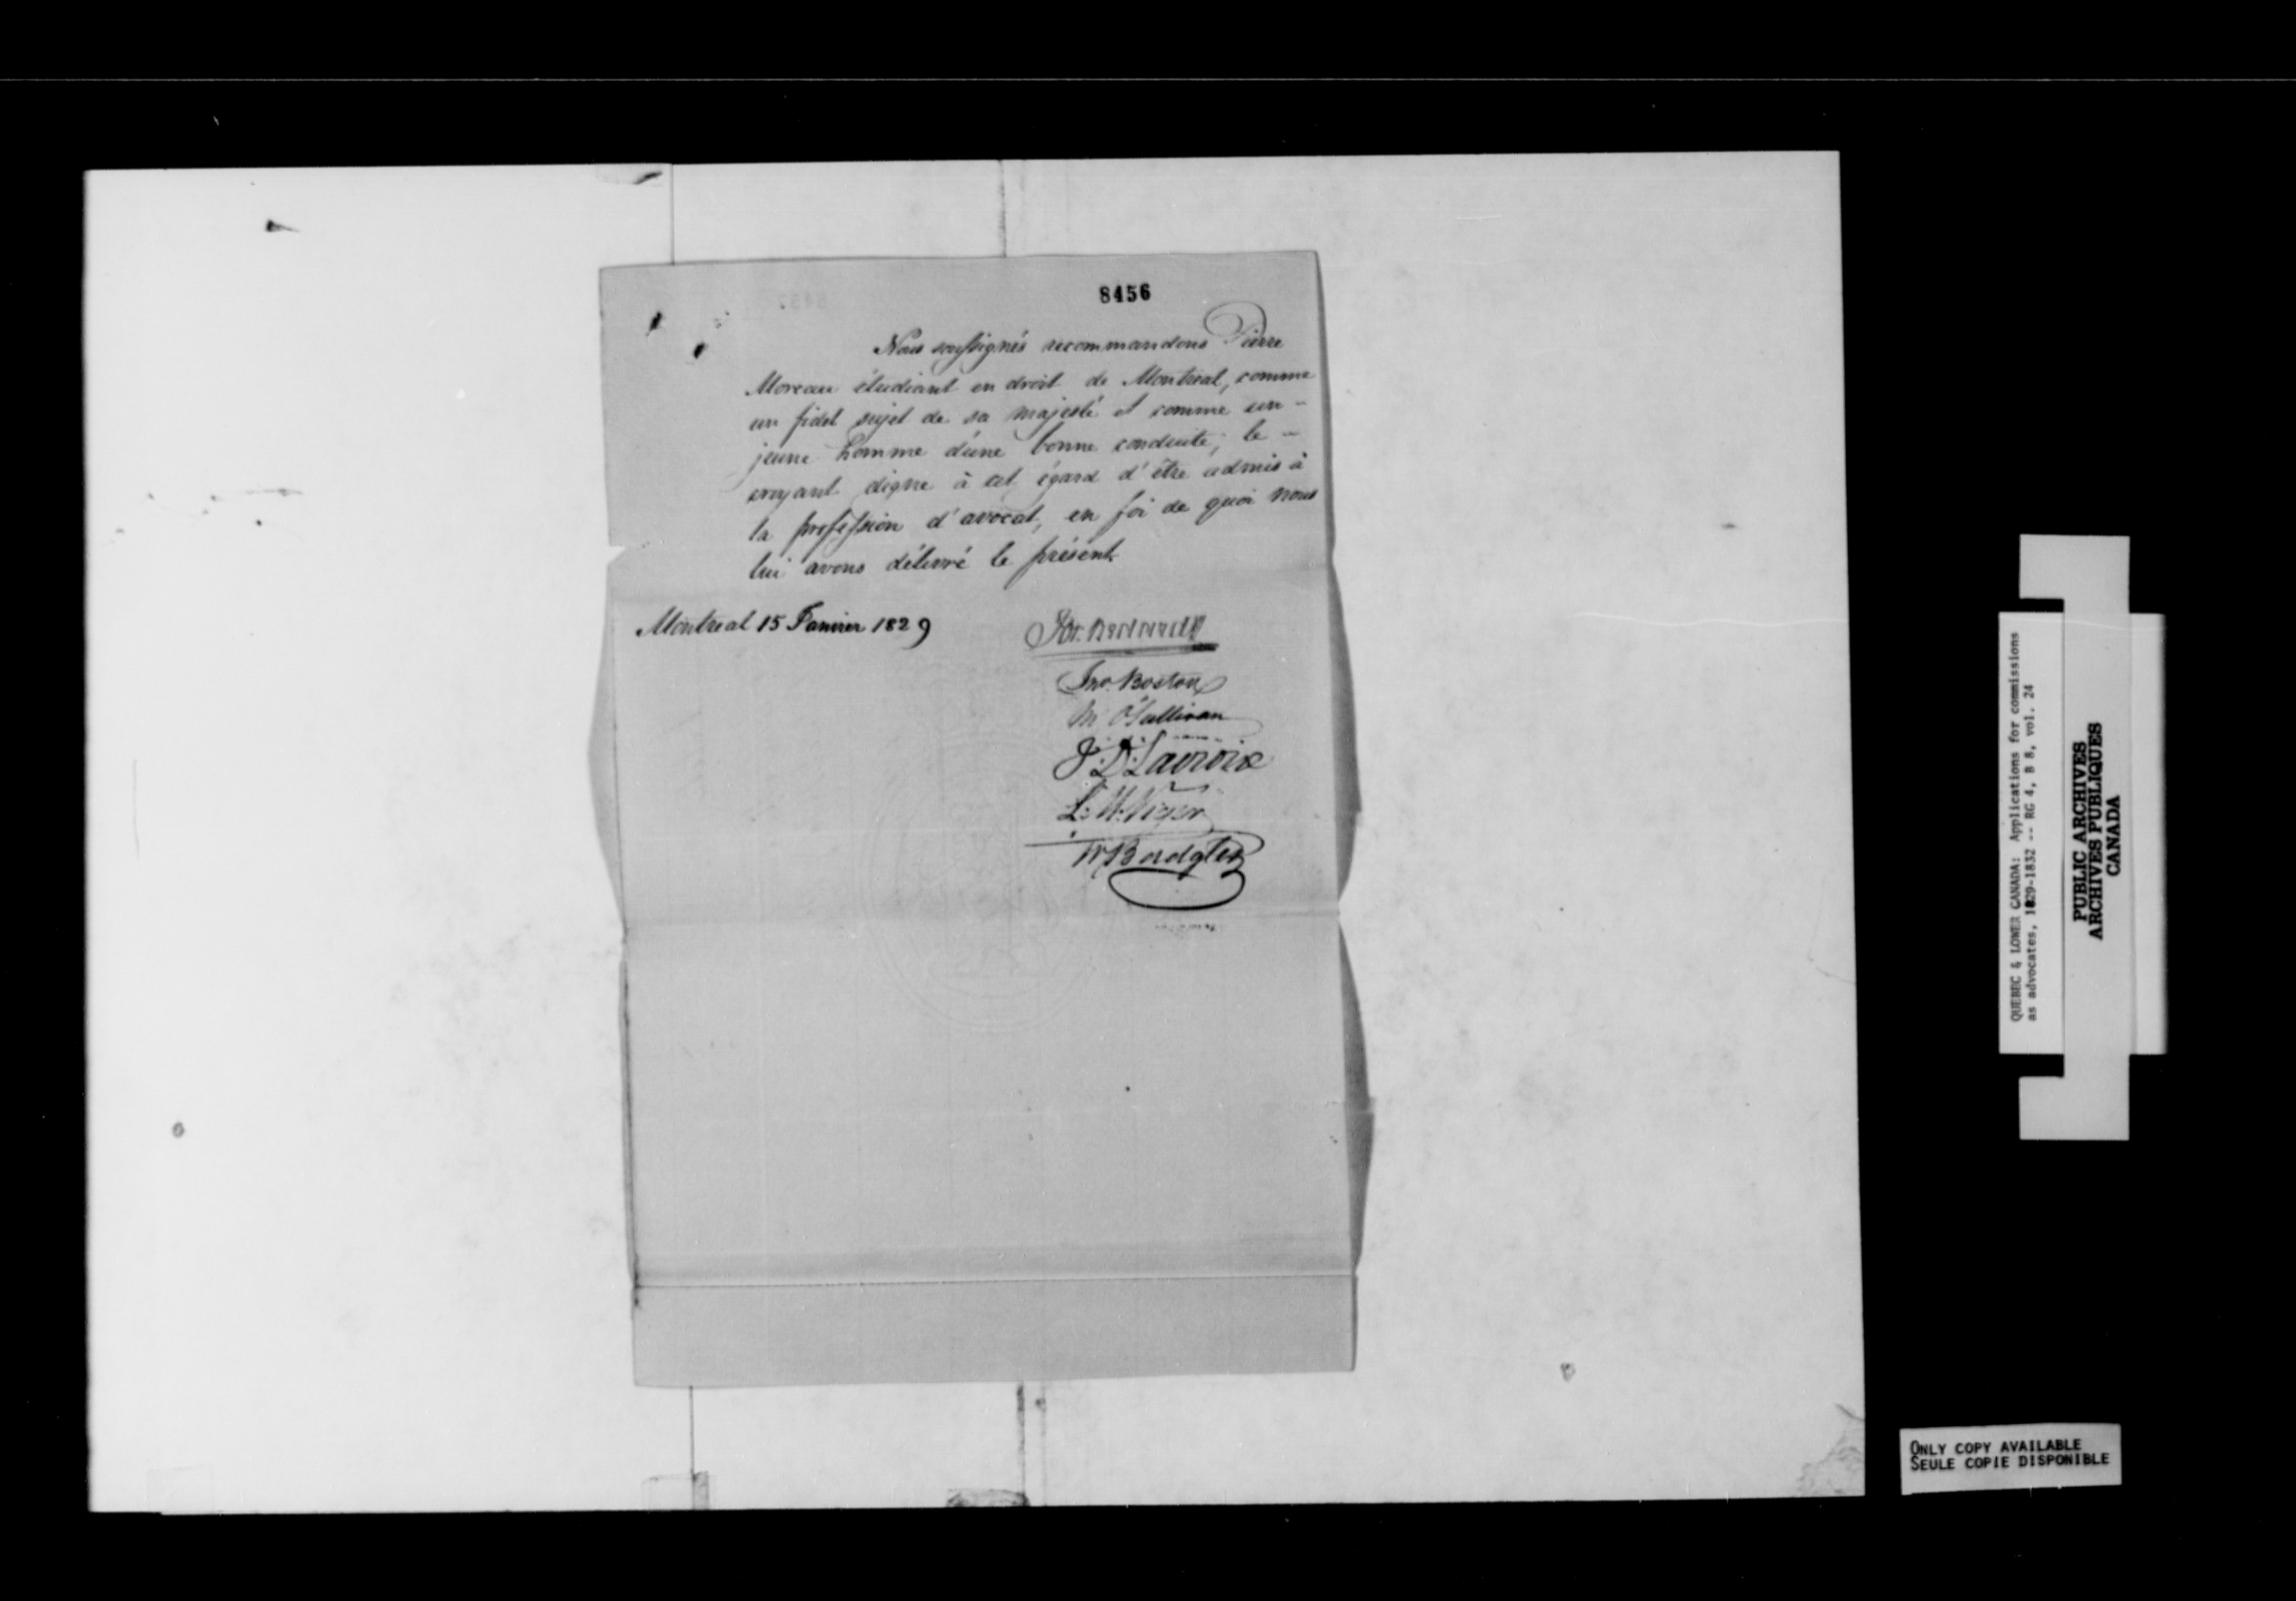 8456
Nous soussignés recommandons Pierre
Moreau étudiant en droit de Montreal, comme
un fidel sujet de sa majesté et comme un -
jeune homme d'une bonne conduite, le -
croyant digne à cet égard d'être admis à
la profession d'avocat, en foi de quoi nous
lui avons délivré le présent.
Montreal 15 Janvier 1829
Jno. Boston
M O'Sullivan
J: D: Lacroix
L: M: Viger
W Badgley
QUEBEC & LOWER CANADA: Applications for commissions
as advocates, 1829-1832 -- RG 4, B 8, vol. 24
PUBLIC ARCHIVES
ARCHIVES PUBLIQUES
CANADA
ONLY COPY AVAILABLE
SEULE COPIE DISPONIBLE